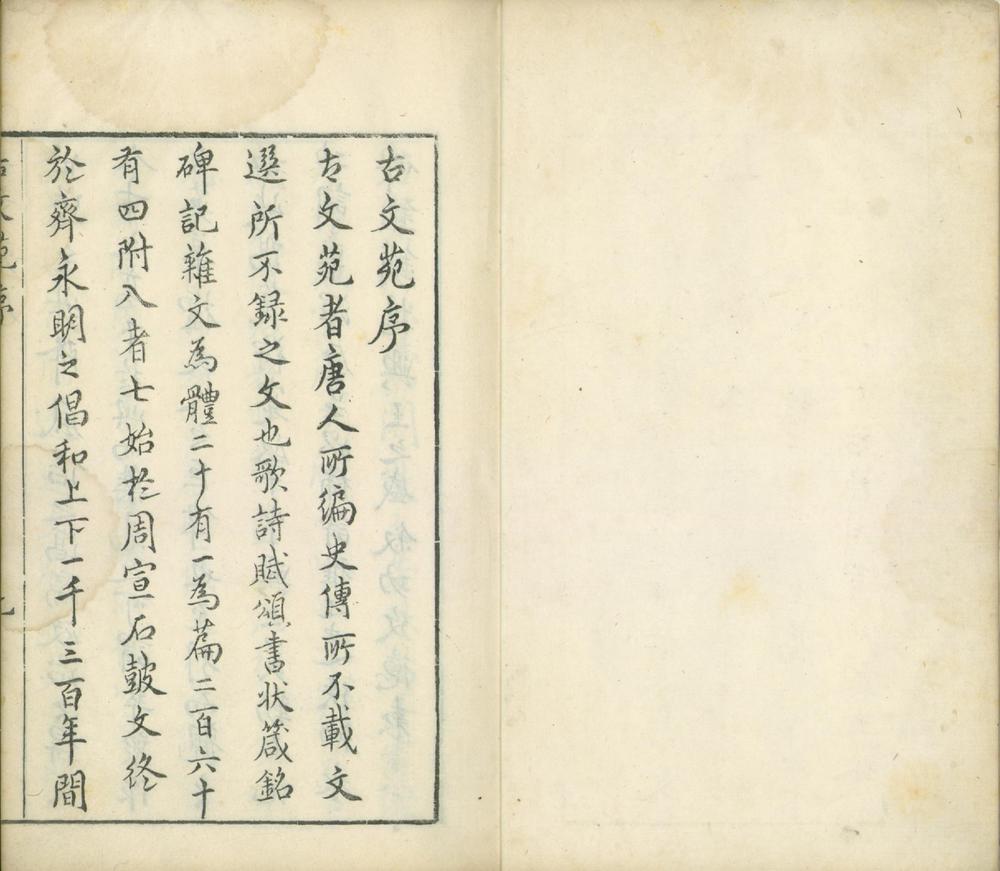 古文苑序
古文苑者唐人所編史傳所不載文
選所不録之文也歌詩賦頌書状箴銘
碑記雜文為體二十有一為篇二百六十
有四附入者七始於周宣石皷文终
於齊永明之倡和上下一千三百年間
古文苑序